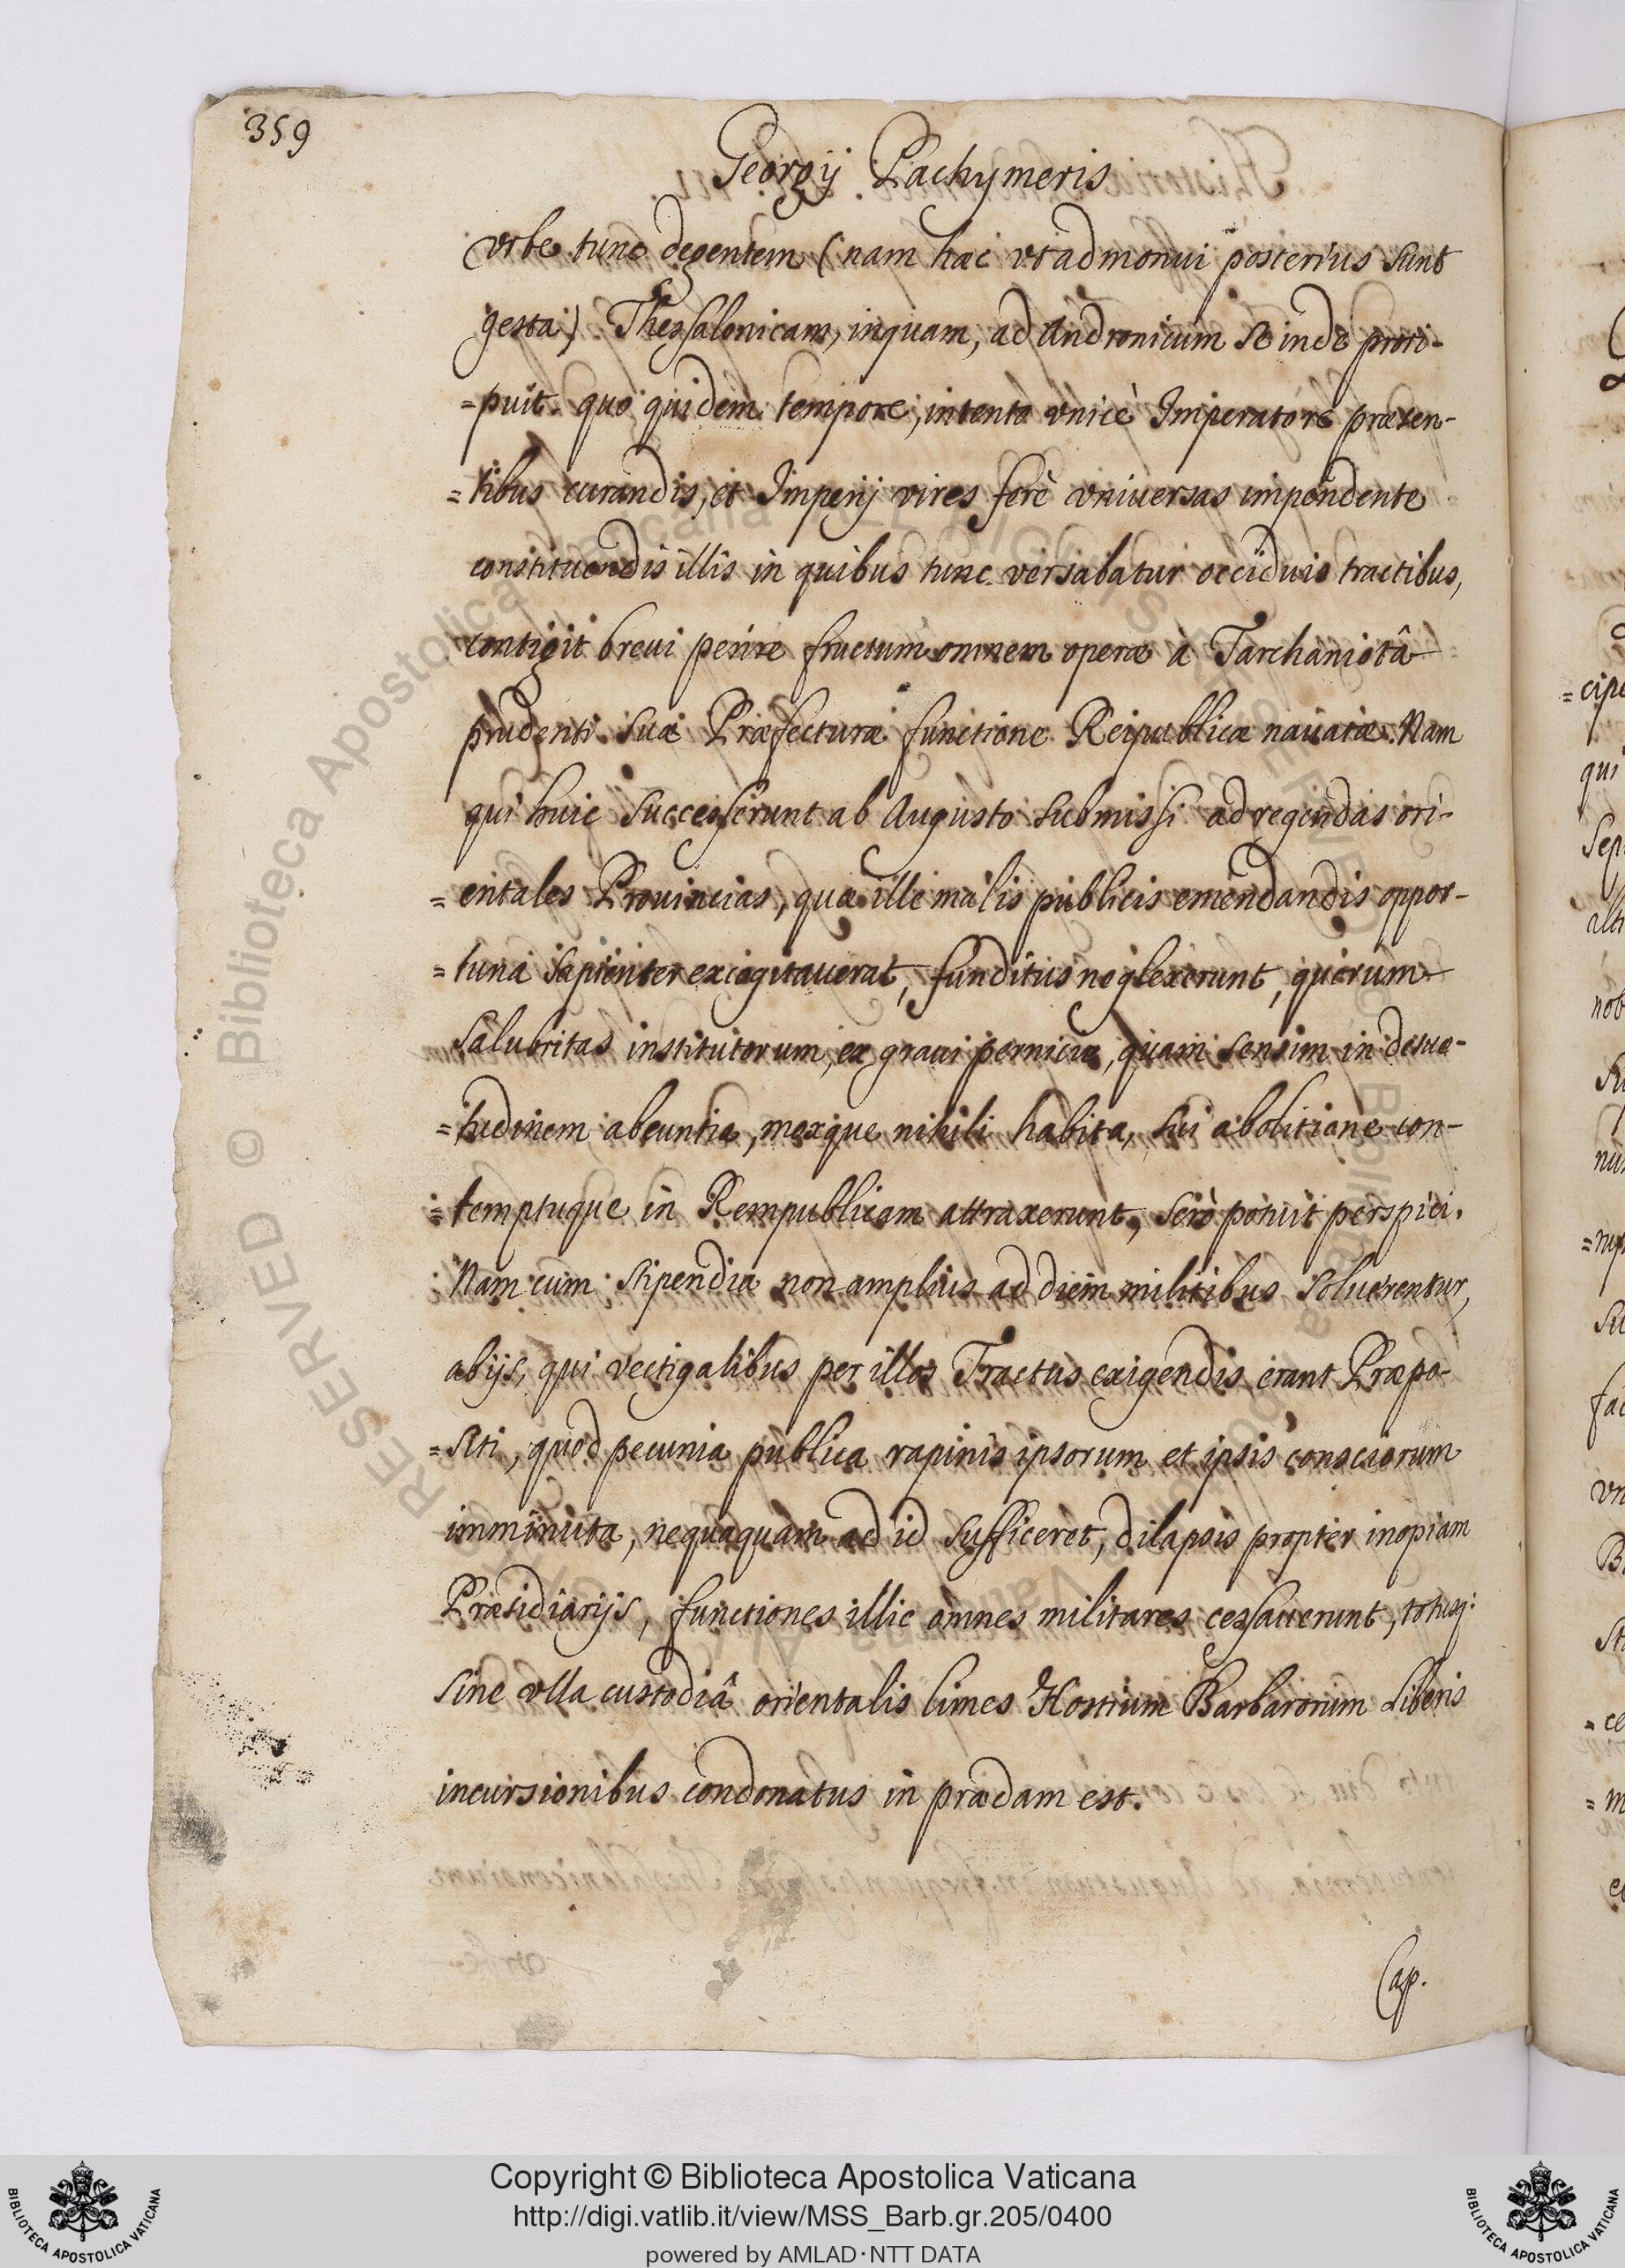 359
Georgij Pachymeris
vrbe tunc degentem (nam hæc vt admonui posterius sunt
gesta) Thessalonicam, inquam, ad Andronicum se inde prori-
=puit. quo quidem tempore, intento vnicè Imperatore præsen-
=tibus curandis, et Imperij vires ferè vniuersas impendente
constituendis illis in quibus tunc versabatur occiduis tractibus,
contigit breui perire fructum omnem operæ à Tarchaniotâ
prudenti suæ Præfecturæ functione Reipublicæ nauatæ. Nam
qui huic successerunt ab Augusto submissi ad regendas ori-
=entales Prouincias, quæ ille malis publicis emendandis oppor-
=tuna sapienter excogitauerat, funditus neglexerunt, quorum
salubritas institutorum, ex graui pernicie, quam sensim in desue-
=tudinem abeuntia, moxque nihili habita, sui abolitione con-
=temptuque in Rempublicam attraxerunt, serò potuit perspici.
Nam cum stipendia non amplius ad diem militibus soluerentur,
ab ijs, qui vectigalibus per illos Tractus exigendis erant Præpo-
=siti, quod pecunia publica rapinis ipsorum et ipsis consciorum
imminuta, nequaquam ad id sufficeret, dilapsis propter inopiam
Præsidiarijs, functiones illic omnes militares cessauerunt, totusq:
sine vlla custodiâ orientalis limes Hostium Barbarorum liberis
incursionibus condonatus in prædam est.
Cap.
Copyright © Biblioteca Apostolica Vaticana
http://digi.vatlib.it/view/MSS_Barb.gr.205/0400
powered by AMLAD·NTT DATA
BIBLIOTECA APOSTOLICA VATICANA
BIBLIOTECA APOSTOLICA VATICANA